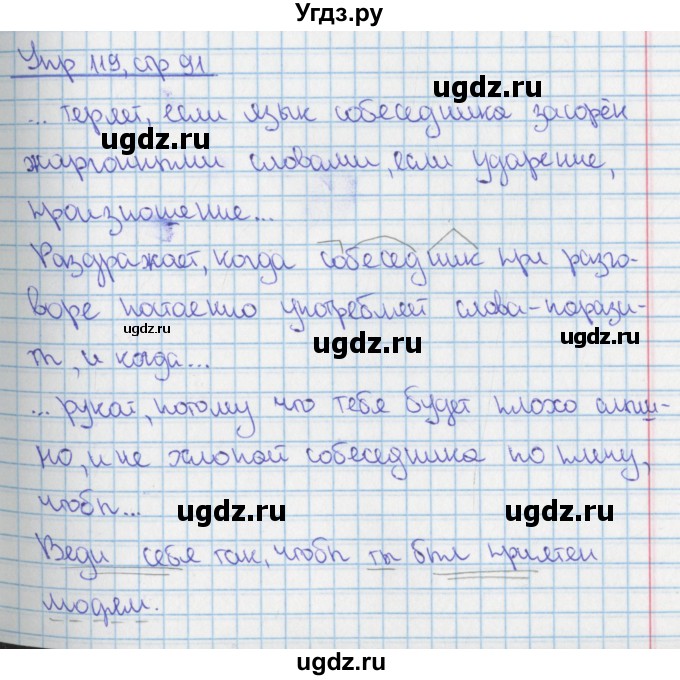 Угдз.ру
Упр 119, стр 91
ugdz.ru
... теряет, если язык собеседника засорён
ugdz.ru ugdz.ru
жаргонными словами, если ударение,
произношение...
ugdz.ru
Раздражает, когда собеседник при разго-
воре постоянно употребляет слова-парази-
ugdz.ru ugdz.ru
ugdz.ru
ты, и когда...
... рукой, потому что тебя будет плохо слыш-
но, и не хлопай собеседника по плечу,
чтобы...
ugdz.ru ugdz.ru
Веди себя так, чтобы ты был приятен
людям.
ugdz.ru
ugdz.ru